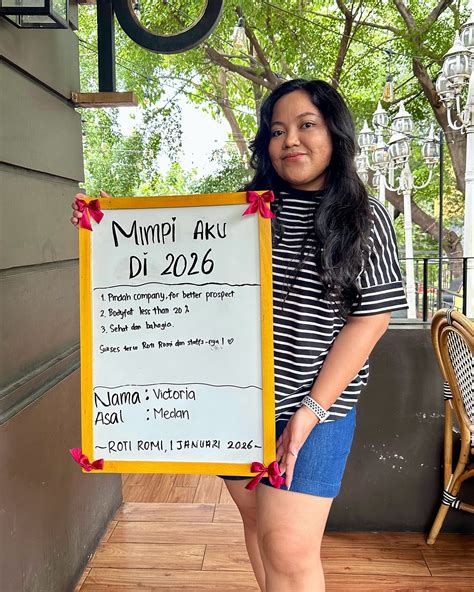 MIMPI AKU
DI 2026
1. Pindah company, for better prospect
2. Bodyfat less than 20%
3. Sehat dan bahagia.
Sukses terus Roti Romi dan staffs-nya! ♡
Nama : Victoria
Asal : Medan
~ ROTI ROMI, 1 JANUARI 2026 ~